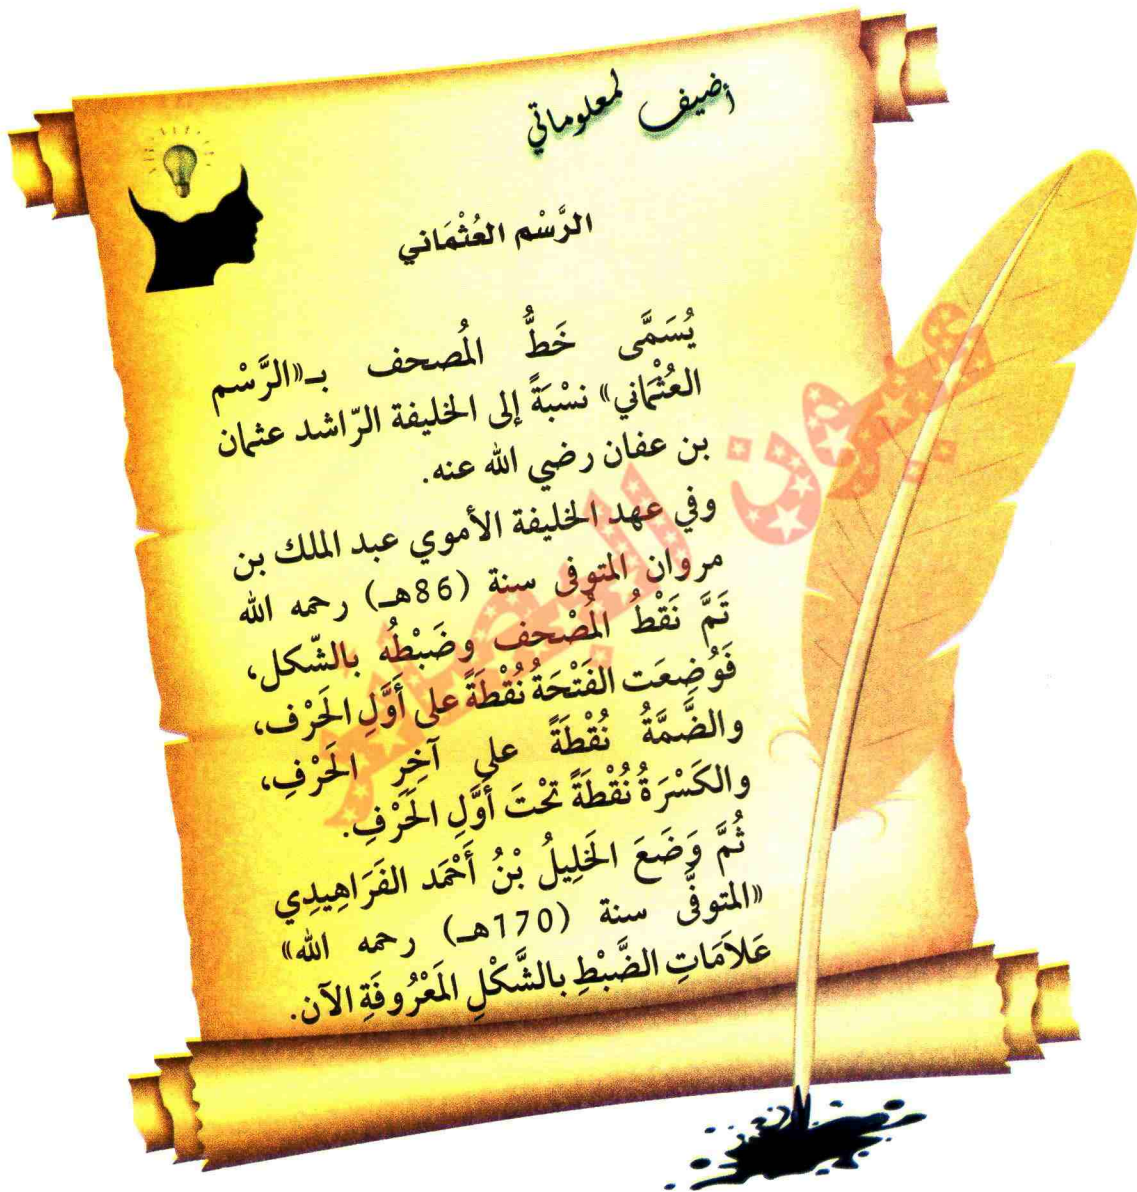 أضيف لمعلوماتي
الرَّسْم العُثْمَاني
يُسَمَّى خَطُّ المُصحف بـ«الرَّسْم
العُثْماني» نسْبَةً إلى الخليفة الرّاشد عثمان
بن عفان رضي الله عنه.
وفي عهد الخليفة الأموي عبد الملك بن
مروان المتوفى سنة (86هـ) رحمه الله
تَمَّ نَقْطُ المُصْحف وضَبْطُه بالشّكل،
فَوُضِعَت الفَتْحَةُ نُقْطَةً على أَوَّلِ الحَرْف،
والضَّمَّةُ نُقْطَةً على آخِرِ الحَرْفِ،
والكَسْرَةُ نُقْطَةً تحْتَ أوَّلِ الحَرْفِ.
ثُمَّ وَضَعَ الخَلِيلُ بْنُ أَحْمَد الفَرَاهِيدِي
«المتوفَّى سنة (170هـ) رحمه الله»
عَلاَمَاتِ الضَّبْطِ بالشَّكْلِ المَعْرُوفَةِ الآن.